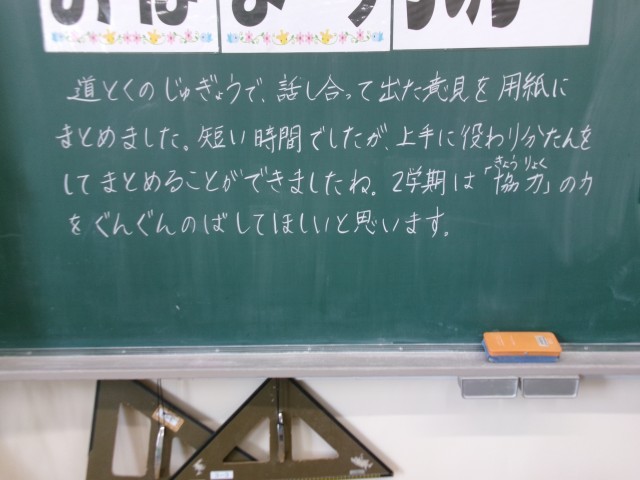 道とくのじゅぎょうで、話し合って出た意見を用紙に
まとめました。短い時間でしたが、上手に役わり分たんを
してまとめることができましたね。2学期は「協力」の力
きょうりょく
をぐんぐんのばしてほしいと思います。